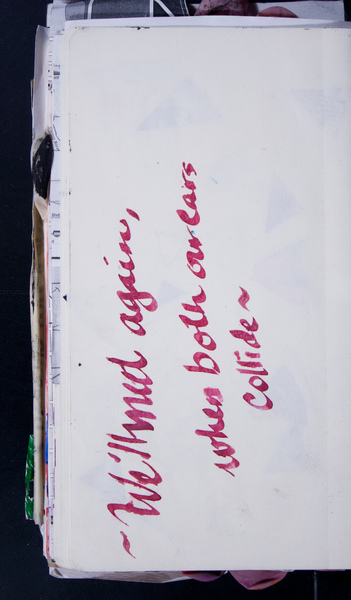 ~ We'll meet again,
when both our cars
collide ~